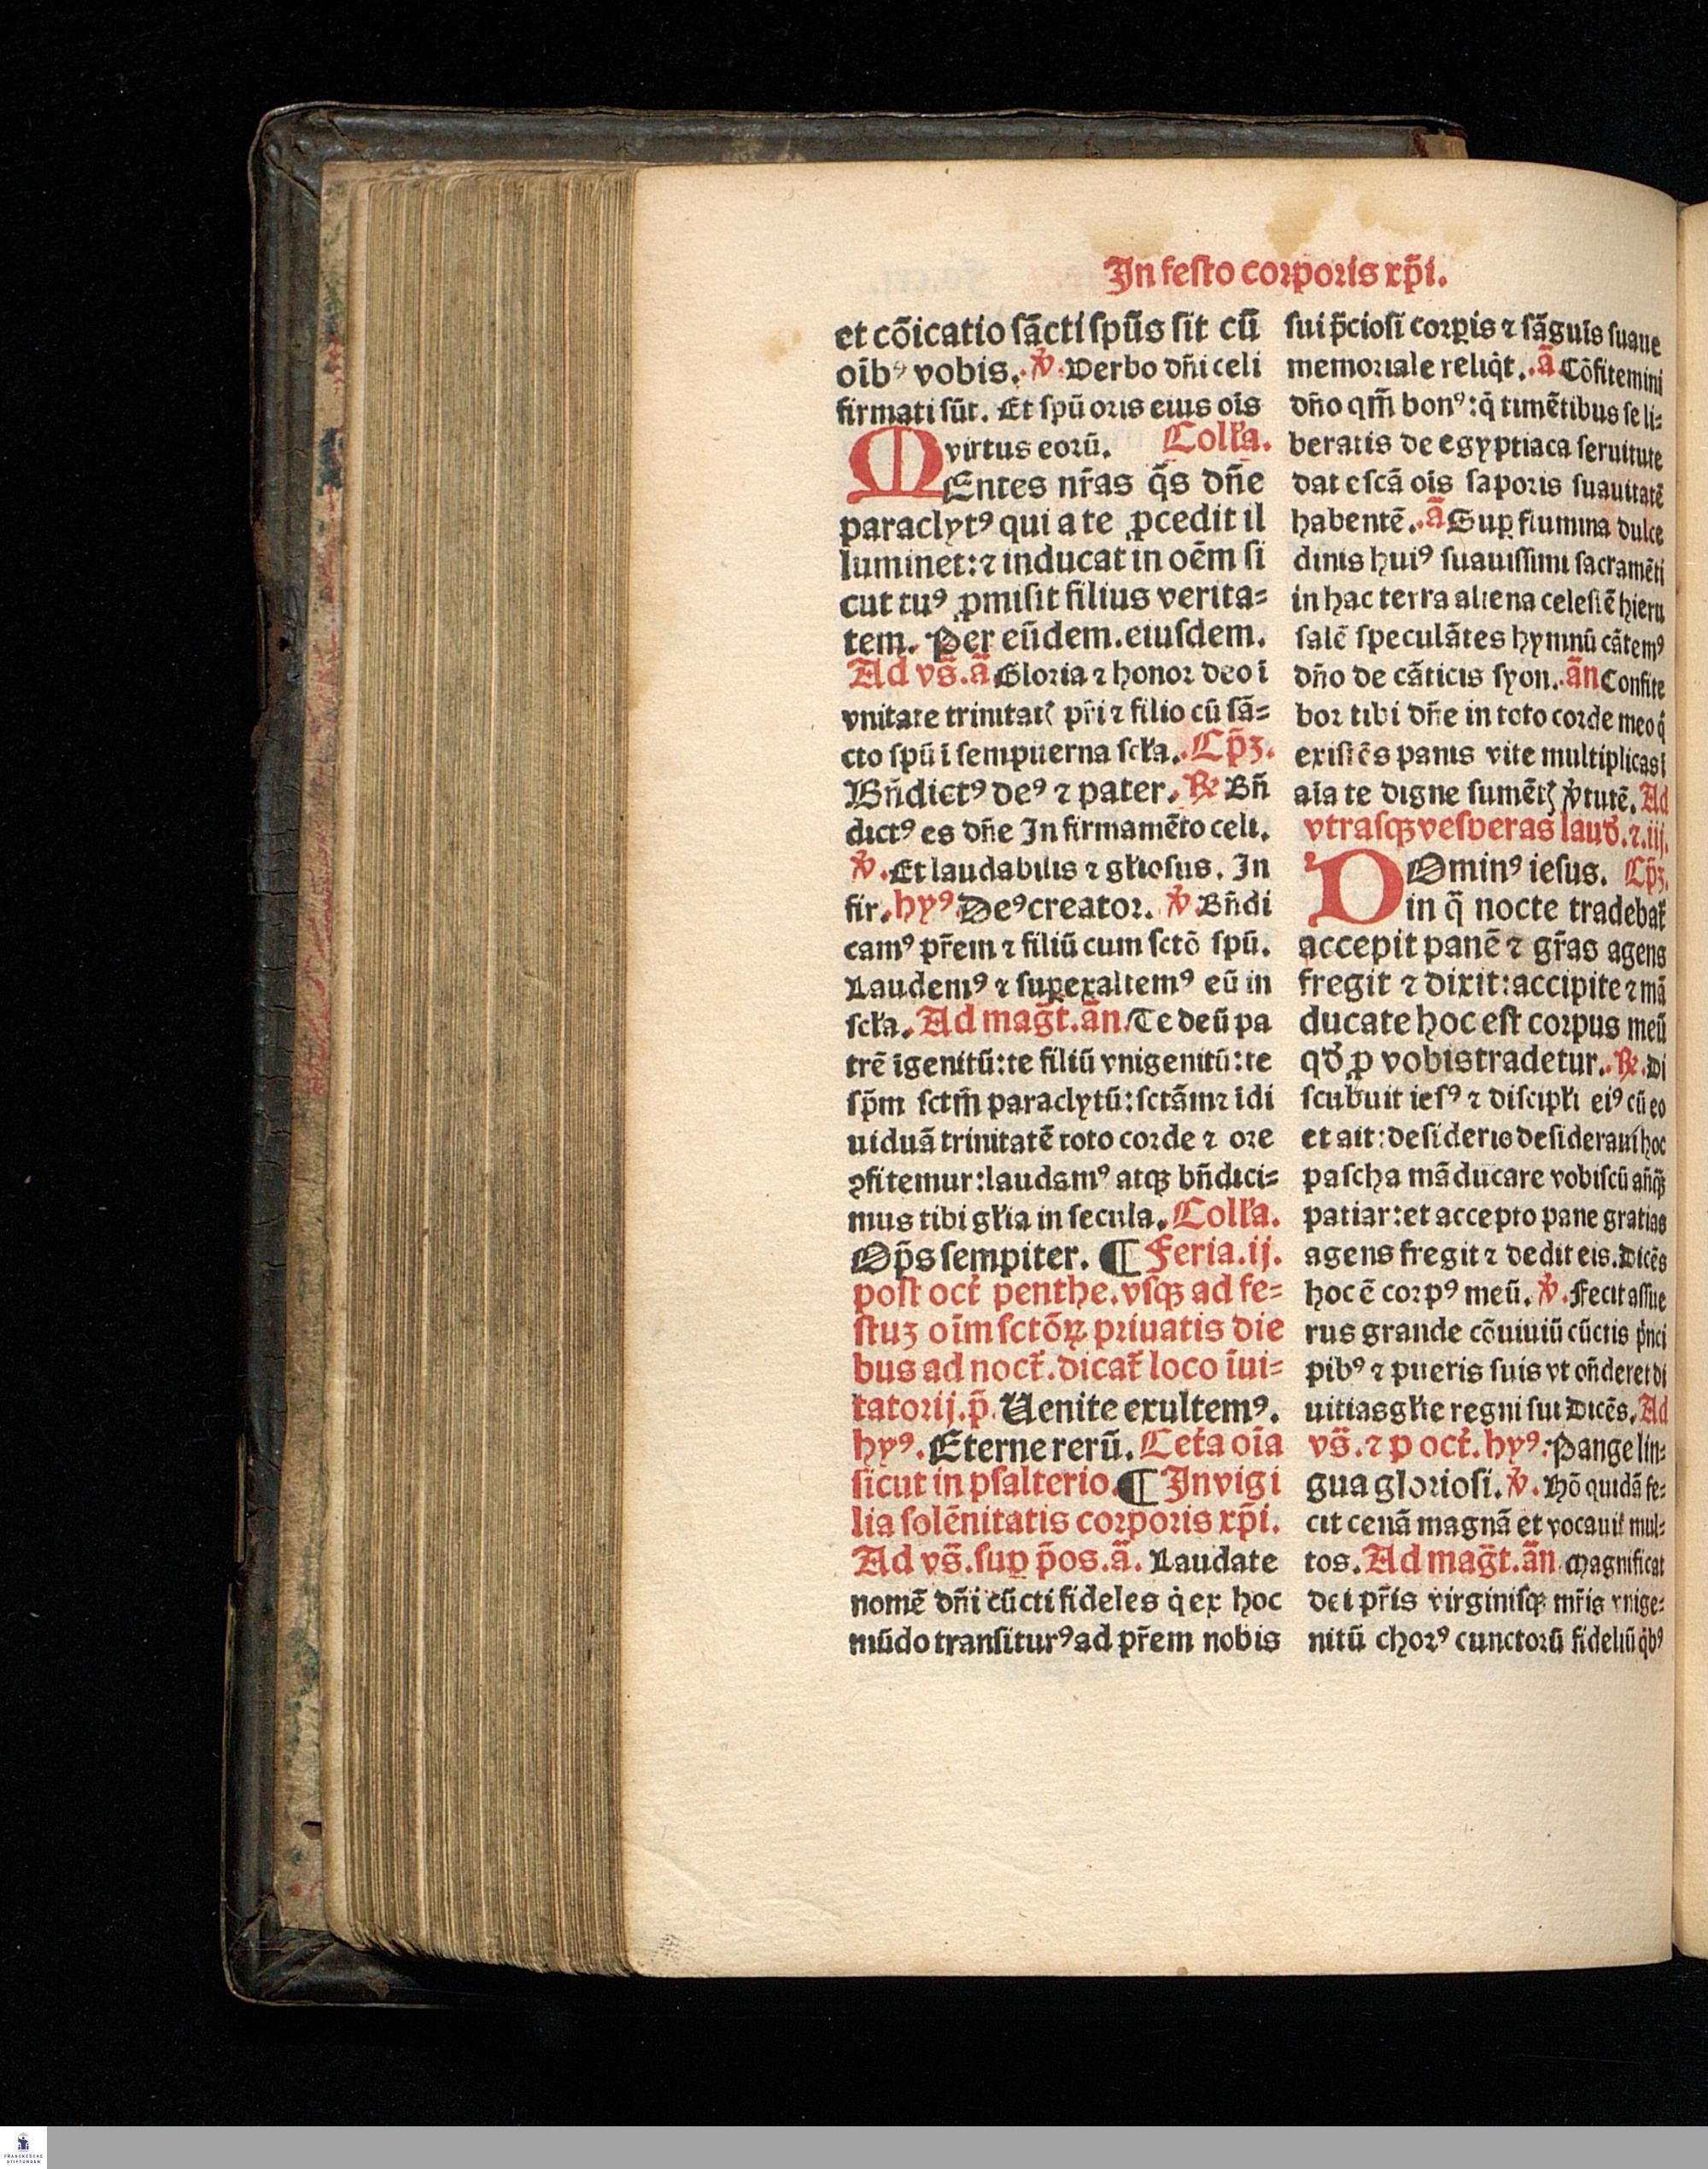 In festo corporis xp̃i.
et cõicatio sãcti spũs sit cũ
oĩbꝰ vobis. ℣. Verbo dñi celi
firmati sũt. Et spũ oris eius oĩs
virtus eorũ. Coll̃a.
MEntes nr̃as q̃s dñe
paraclytꝰ qui a te ꝓcedit il
luminet: ⁊ inducat in oẽm si
cut tuꝰ ꝓmisit filius verita⸗
tem. Per eũdem. eiusdem.
Ad vs̃. ã Gloria ⁊ honor deo ĩ
vnitate trinitatꝭ pr̃i ⁊ filio cũ sã⸗
cto spũ ĩ sempiterna scl̃a. Cp̃ꝫ.
Bñdictꝰ deꝰ ⁊ pater. ℟ Bñ
dictꝰ es dñe In firmamẽto celi.
℣. Et laudabilis ⁊ gl̃iosus. In
fir. hyꝰ. Deꝰ creator. ℣. Bñdi
camꝰ pr̃em ⁊ filiũ cum sctõ spũ.
Laudemꝰ ⁊ suꝑexaltemꝰ eũ in
scl̃a. Ad mag̃t. ãn. Te deũ pa
trẽ ĩgenitũ: te filiũ vnigenitũ: te
sp̃m sctm̃ paraclytũ: sctãmꝫ ĩdi
uiduã trinitatẽ toto corde ⁊ ore
ꝯfitemur: laudamꝰ atqꝫ bñdici⸗
mus tibi gl̃ia in secula. Coll̃a.
Op̃s sempiter. ¶ Feria. ij.
post oct̃ penthe. vsqꝫ ad fe⸗
stuꝫ oĩm sctõꝝ priuatis die
bus ad noct̃. dicat̃ loco ĩui⸗
tatorij. p̃. Uenite exultemꝰ.
hyꝰ. Eterne rerũ. Cet̃a oĩa
sicut in psalterio. ¶ In vigi
lia solẽnitatis corporis xp̃i.
Ad vs̃. suꝑ p̃os. ã. Laudate
nomẽ dñi cũcti fideles q̇ ex hoc
mũdo transiturꝰ ad pr̃em nobis
sui p̃ciosi corꝑis ⁊ sãguĩs suaue
memoriale reliq̇t. ã Cõfitemini
dño qm̃ bonꝰ: q̇ timẽtibus se li⸗
beratis de egyptiaca seruitute
dat escã oĩs saporis suauitatẽ
habentẽ. ã Suꝑ flumina dulce
dinis huiꝰ suauissimi sacramẽti
in hac terra aliena celestẽ hieru
salẽ speculãtes hymnũ cãtemꝰ
dño de cãticis syon. ãn Confite
bor tibi dñe in toto corde meo q̇
existẽs panis vite multiplicasi
aĩa te digne sumẽtꝭ v̓tutẽ. Ad
vtrasqꝫ vesperas laud̃. ⁊. iij.
DOminꝰ iesus. Cp̃ꝫ.
in q̃ nocte tradebat̃
accepit panẽ ⁊ gr̃as agens
fregit ⁊ dixit: accipite ⁊ mã
ducate hoc est corpus meũ
qd̓ ꝓ vobis tradetur. ℟. Di
scubuit iesꝰ ⁊ discipl̃i eiꝰ cũ eo
et ait: desiderio desideraui hoc
pascha mãducare vobiscũ añqꝫ
patiar: et accepto pane gratias
agens fregit ⁊ dedit eis. Dicẽs
hoc ẽ corpꝰ meũ. ℣. Fecit assue
rus grande cõuiuiũ cũctis p̓nci
pibꝰ ⁊ pueris suis vt oñderet di
uitias gl̃ie regni sui Dicẽs. Ad
vs̃. ⁊ p oct̃. hyꝰ. Pange lin⸗
gua gloriosi. ℣. Hõ quidã fe⸗
cit cenã magnã et vocauit mul⸗
tos. Ad mag̃t. ãn Magnificat
dei pr̃is virginisqꝫ mr̃is vnige⸗
nitũ chorꝰ cunctorũ fideliũ q̇bꝰ
FRANCKESCHE
STIFTUNGEN